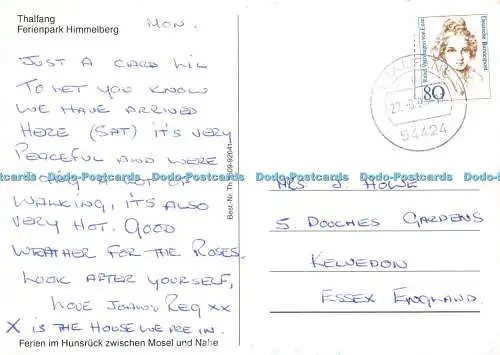 Thalfang
Ferienpark Himmelberg
MON.
JUST A CARD
TO LET YOU KNOW
WE HAVE ARRIVED
HERE (SAT) IT'S VERY
PEACEFUL AND WERE
A LOT OF
WALKING, IT'S ALSO
VERY HOT. GOOD
WEATHER FOR THE ROSES.
LOOK AFTER YOURSELF,
LOVE REG XX
X IS THE HOUSE WE ARE IN.
Ferien im Hunsrück zwischen Mosel und Nahe
Best.-Nr. Th
Deutsche Bundespost
Rahel Varnhagen von Ense
80
54424
Dodo-Postcards Dodo-Postcards Dodo-Postcards Dodo-Postcards
MRS J HOWE
5 DOUCHES GARDENS
KELVEDON
ESSEX ENGLAND.